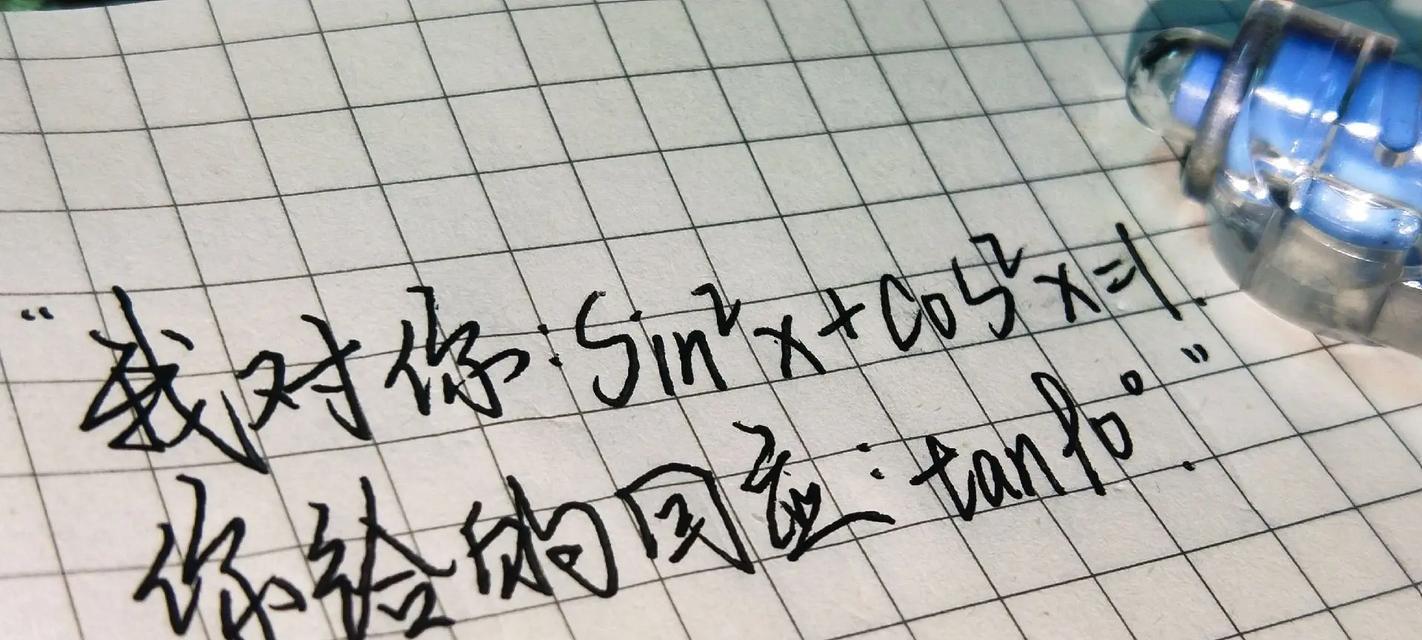 “我对你:Sin²x+cos²x=1.
你给的回应:tan90°.”